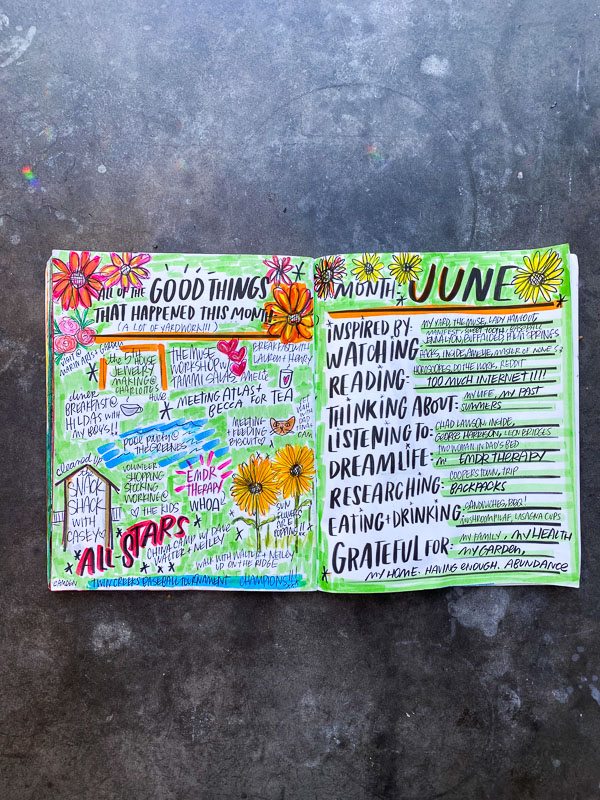 ALL OF THE GOOD THINGS
THAT HAPPENED THIS MONTH:
(A LOT OF YARDWORK!!!)
VISIT @
MARIN GARDEN
the STHOUSE
JEWELRY
MAKING @
CHARLOTTE'S
THE MUSE
WORKSHOP W
TAMMI SALAS
BREAKFAST WITH
LAUREN + HENRY
AMELIE
MEETING ATLAS &
BECCA FOR TEA
diner
BREAKFAST @
HILDAS WITH
MY BOYS!!
POOL PARTY @
THE GREENES
MEETING
+ FEEDING
BISCUIT ♡
cleaned up
SNACK
SHACK
WITH
CASEY
VOLUNTEER
SHOPPING
STOCKING
WORKING @
♡ THE KIDS
EMDR
THERAPY
WHOA
SUN
FLOWERS
ARE
POPPING!!
ALL STARS
CHINA CAMP W/ DAVE
WALTER + NEILEY
WALK WITH WALTER + NEILEY
UP ON THE RIDGE
CAMDEN
TWIN CREEKS BASEBALL TOURNAMENT CHAMPIONS!!!
MONTH: JUNE
INSPIRED BY: MY YARD, THE MUSE, LADY HANGOUT
WATCHING
READING: HOROSCOPES, DO THE WORK, REDDIT
100 MUCH INTERNET!!!!
THINKING ABOUT: MY LIFE, MY PAST
SUMMERS
LISTENING TO: CHAD LAWSON, INSIDE,
GEORGE HARRISON, LEON BRIDGES
DREAMLIFE: TWO WOMAN IN DAD'S BED
EMDR THERAPY
RESEARCHING: COOPERSTOWN, TRIP
BACKPACKS
EATING + DRINKING SANDWICHES, BBQ!
MUSHROOM PILAF, LASAGNA CUPS
GRATEFUL FOR: MY FAMILY, MY HEALTH
MY GARDEN,
MY HOME. HAVING ENOUGH. ABUNDANCE